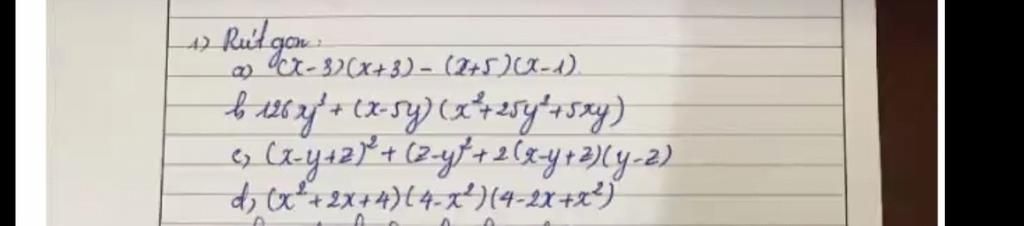 1) Rút gọn:
a) (x-3)(x+3) - (x+5)(x-1)
b 126xy³ + (x-5y)(x²+25y²+5xy)
c, (x-y+z)² + (z-y)² + 2(x-y+z)(y-z)
d, (x²+2x+4)(4-x²)(4-2x+x²)